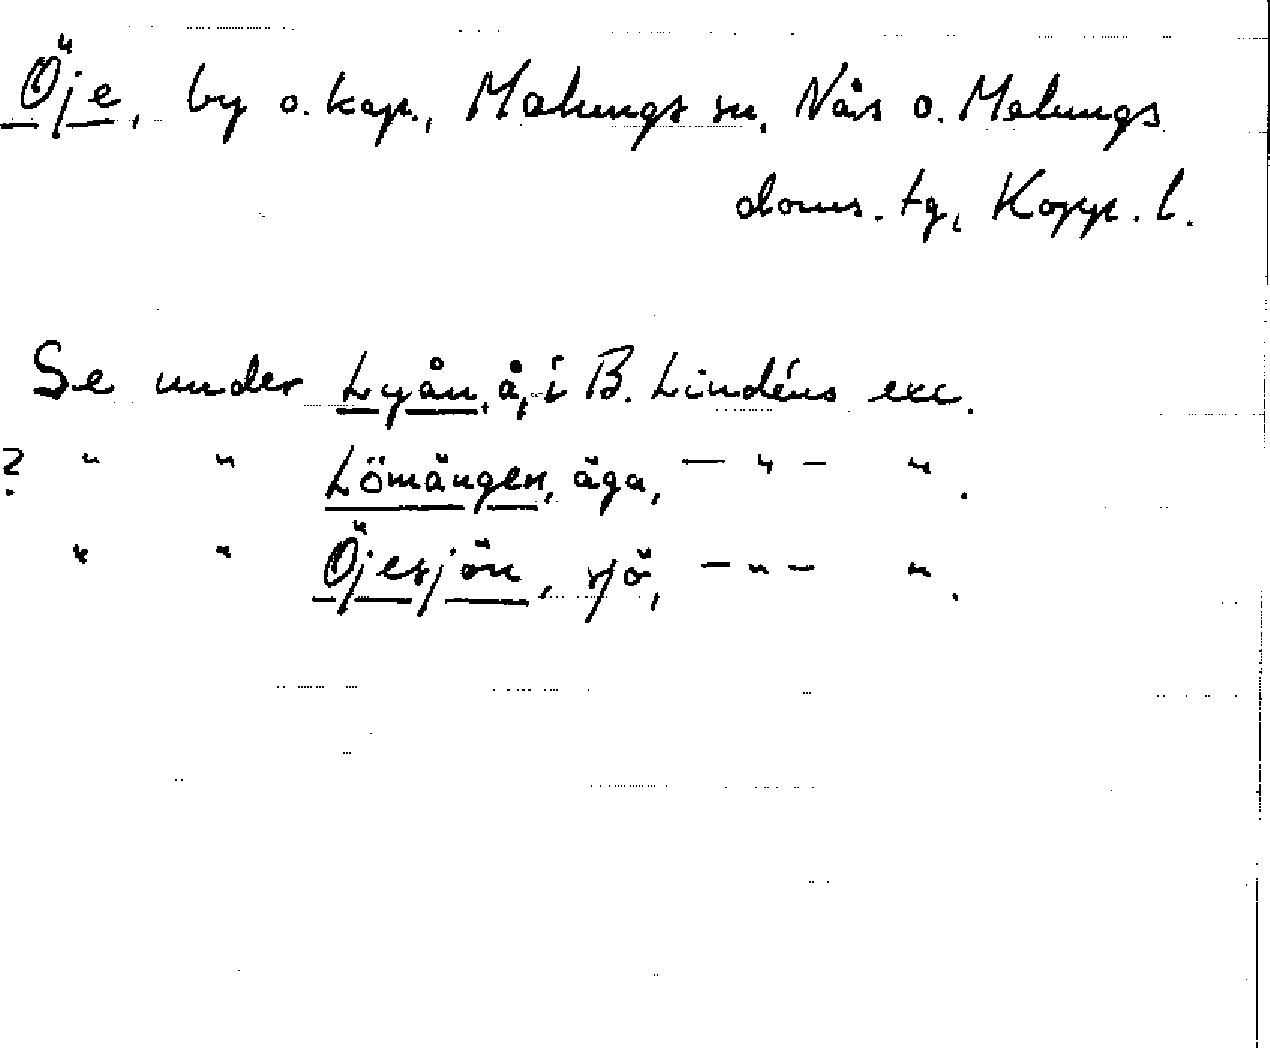 Öje, by o. kap., Malungs sn, Nås o. Malungs
doms. tg, Kopp. l.
Se under Lyån, å, i B. Lindéns exc.
? " " Lömången, äga, — " — " .
" " Öjesjön, sjö, — " — " .